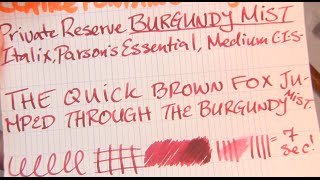 Private Reserve BURGUNDY MIST
Italix, Parson's Essential, Medium C.I.S-
THE QUICK BROWN FOX JU-
MPED THROUGH THE BURGUNDY MIST.
= 7
sec!